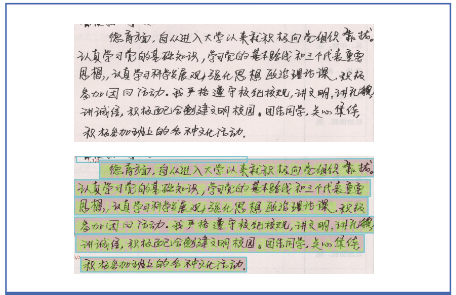 德育方面,自从进入大学以来就积极向党组织靠拢。
认真学习党的基础知识,学习党的基本路线和三个代表重要
思想,认真学习科学发展观,强化思想政治理论课、积极
参加团的活动。我严格遵守校纪校规,讲文明,讲礼貌,
讲诚信,积极配合创建文明校园。团结同学,关心集体
积极参加班上的各种文化活动。
德育方面,自从进入大学以来就积极向党组织靠拢。
认真学习党的基础知识,学习党的基本路线和三个代表重要
思想,认真学习科学发展观,强化思想政治理论课、积极
参加团的活动。我严格遵守校纪校规,讲文明,讲礼貌,
讲诚信,积极配合创建文明校园。团结同学,关心集体
积极参加班上的各种文化活动。